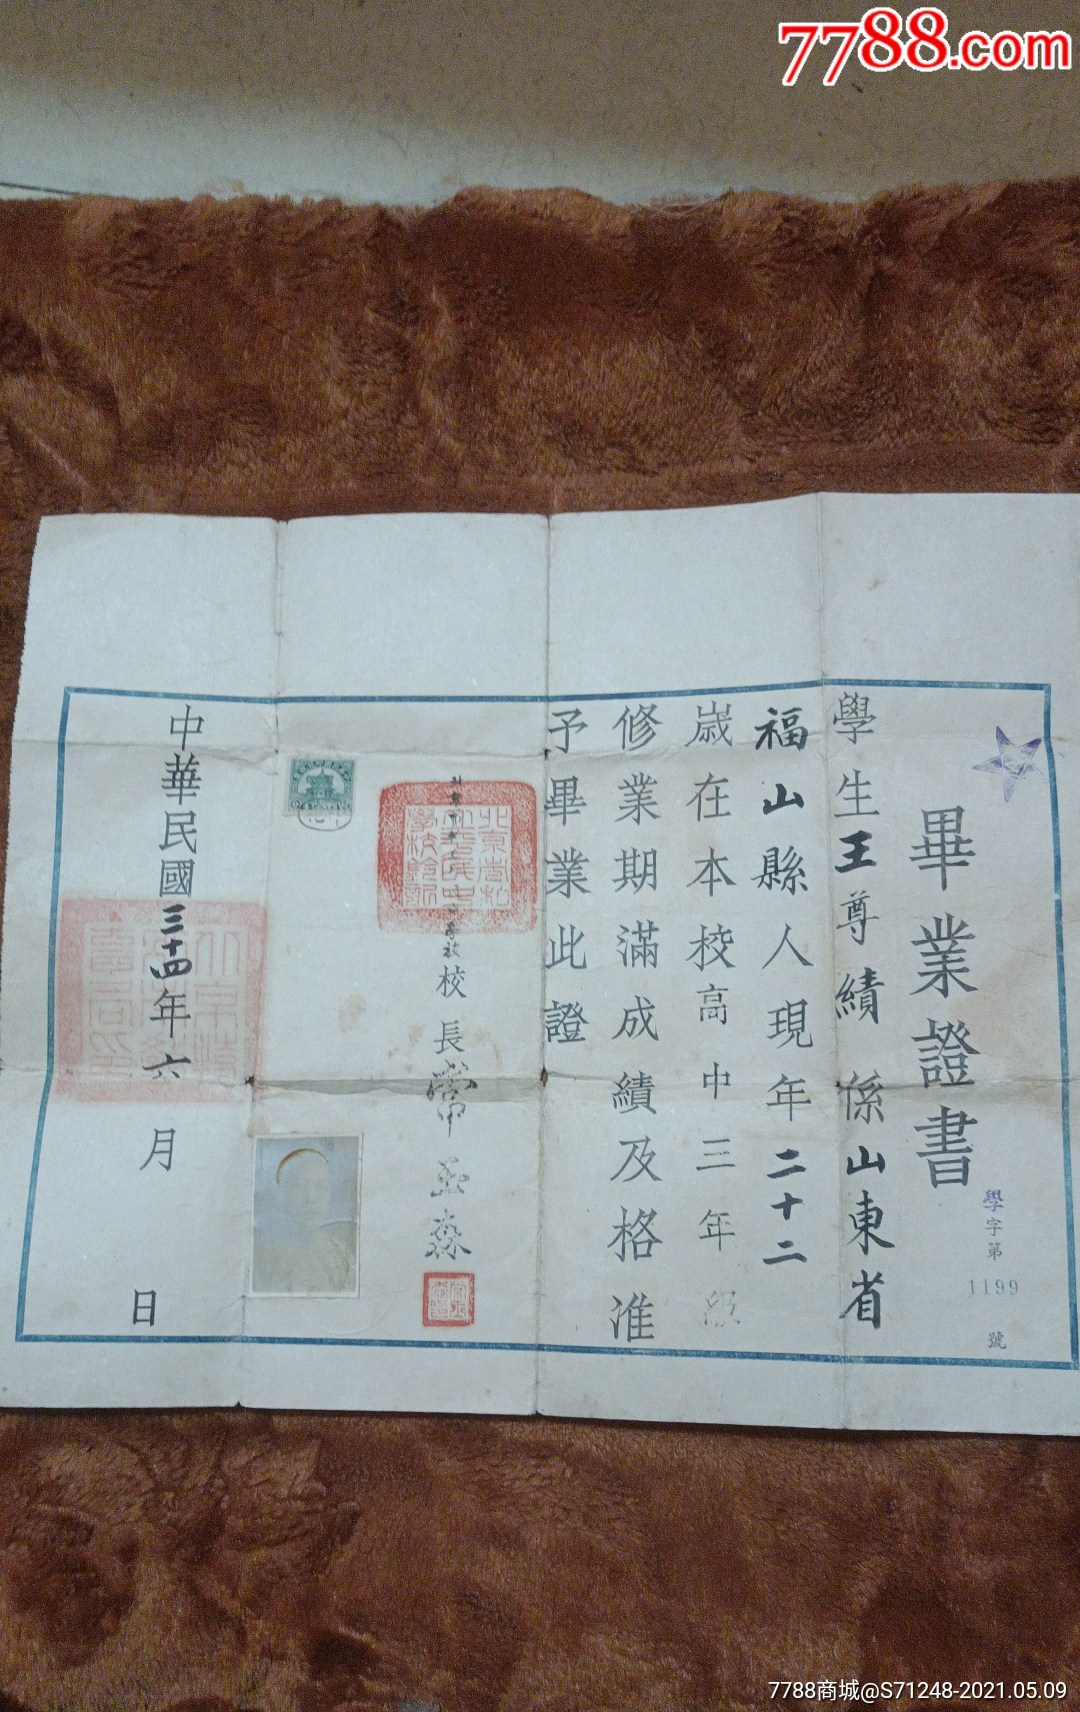 7788.com
畢業證書
學字第1199號
學生王尊績係山東省
福山縣人現年二十二
歲在本校高中三年級
修業期滿成績及格准
予畢業此證
校長常亞森
中華民國三十四年六月 日
7788商城@S71248-2021.05.09